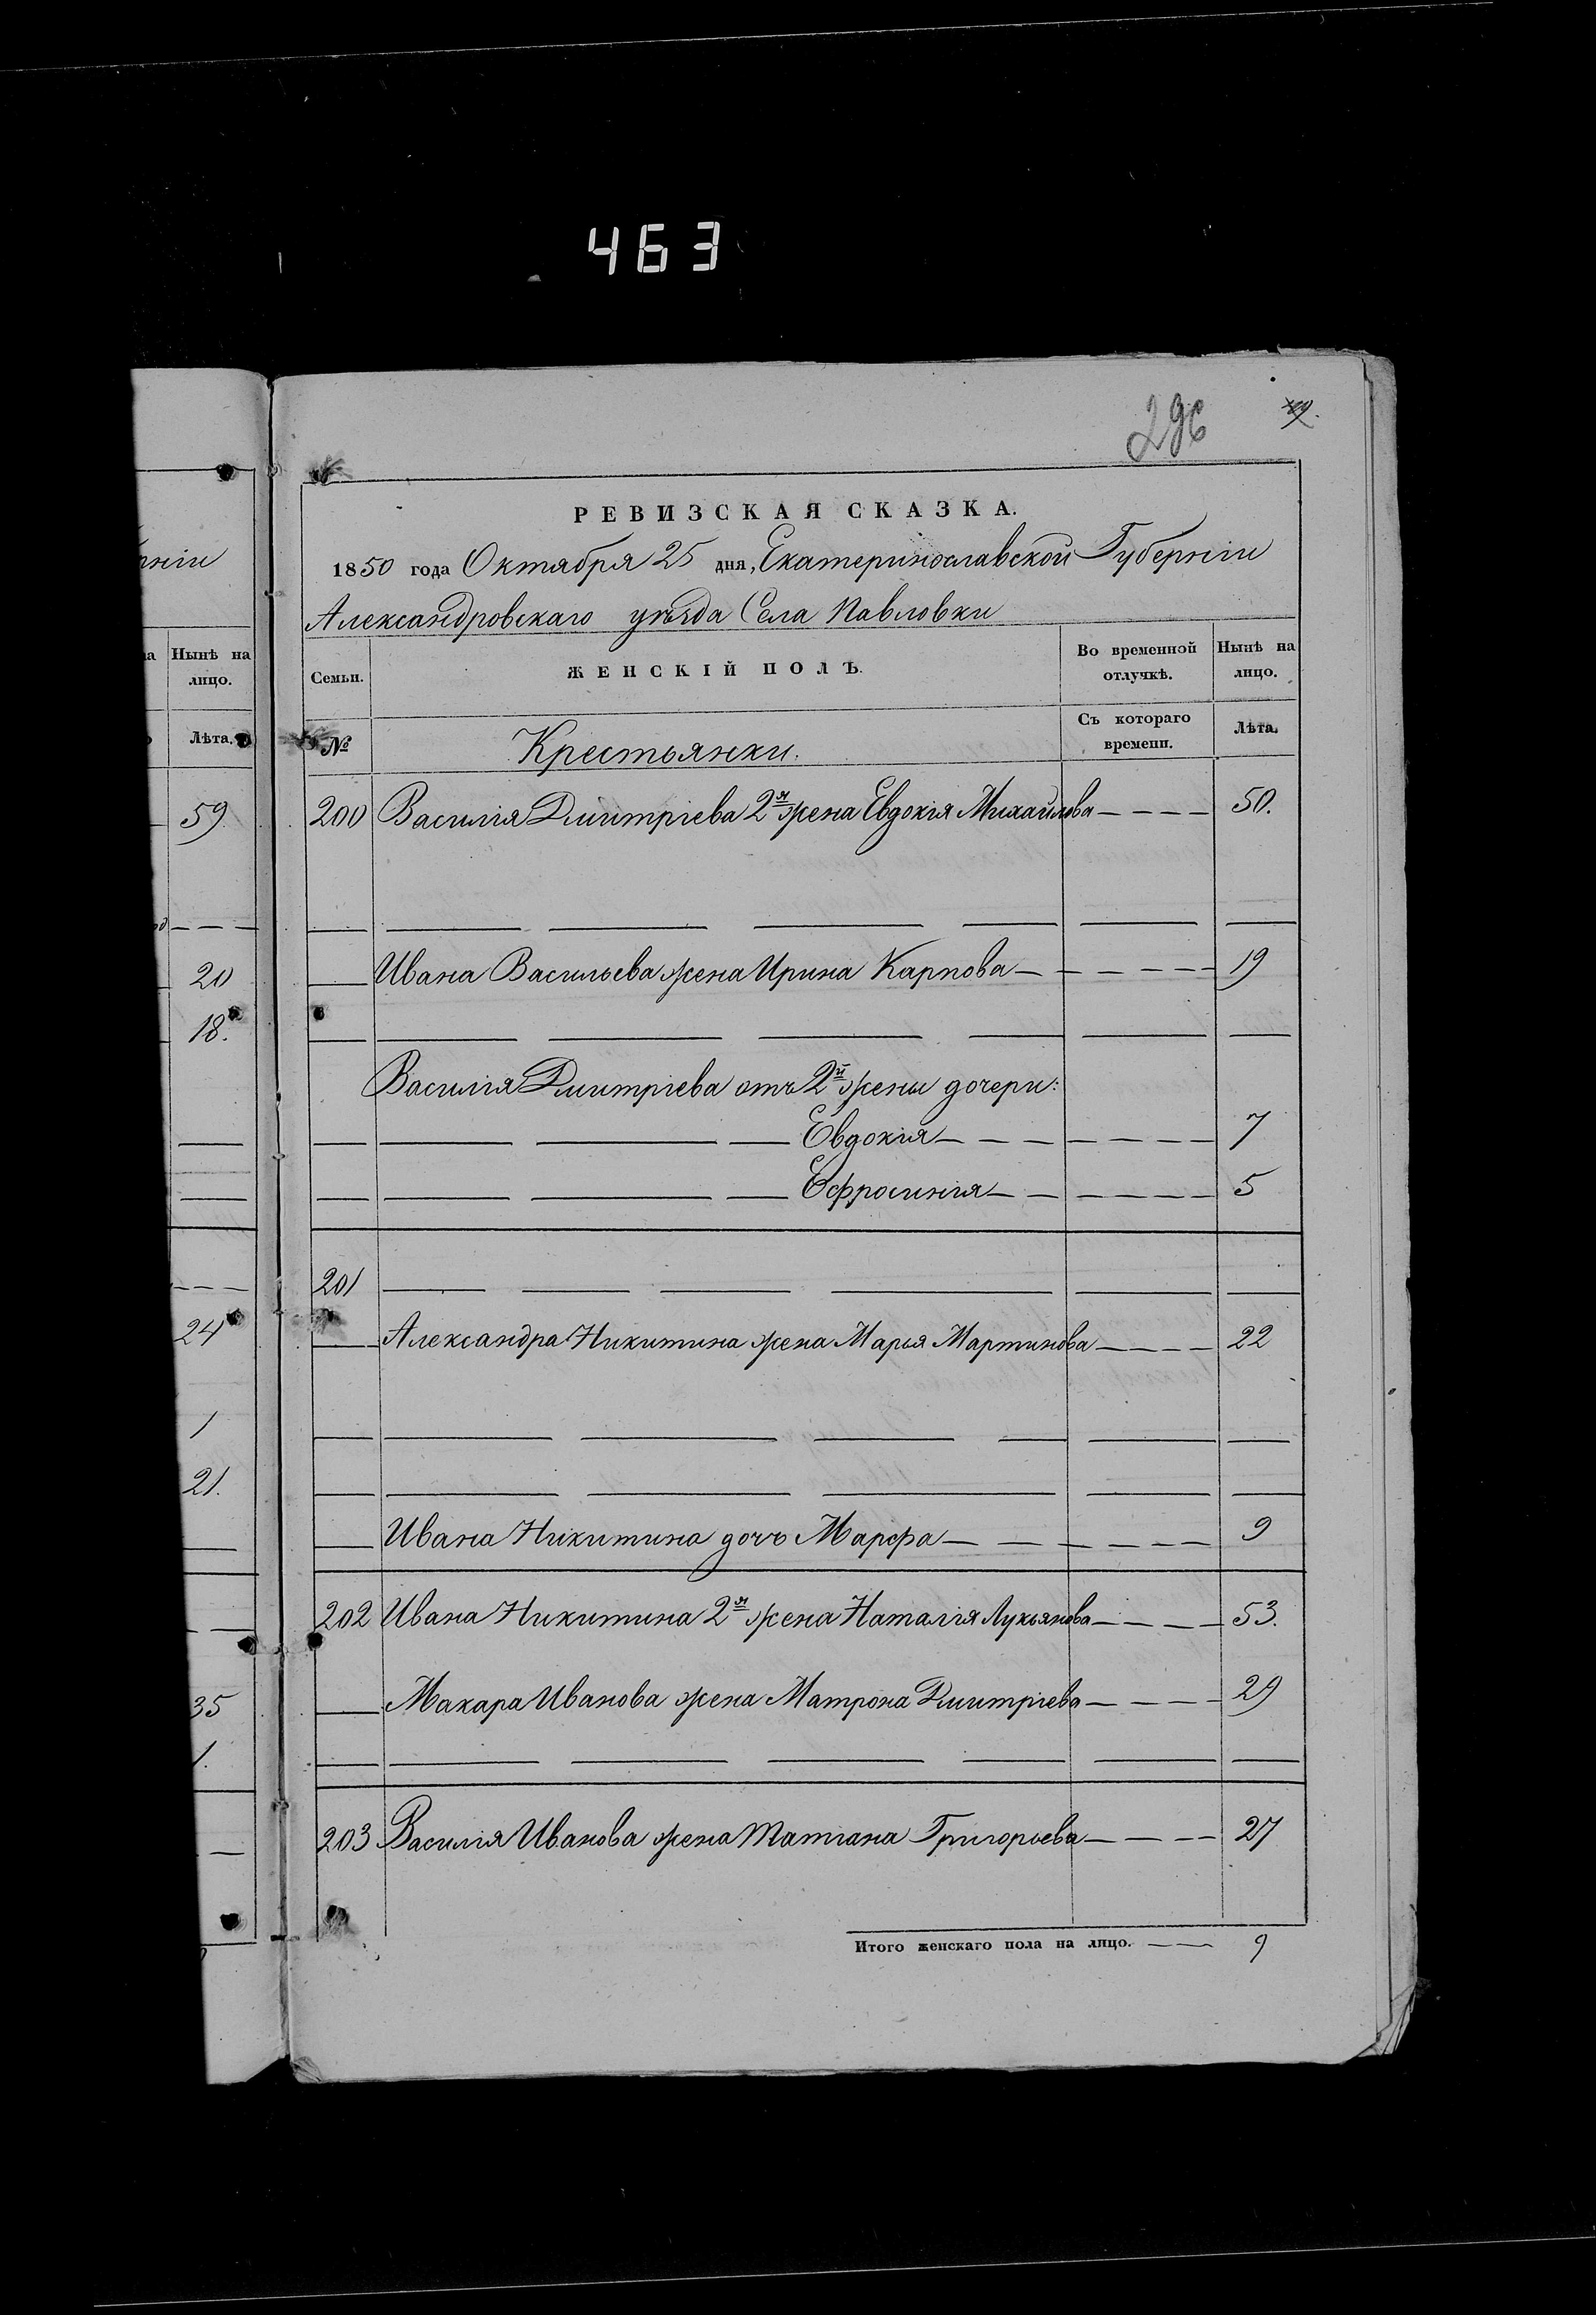 463
296
РЕВИЗСКАЯ СКАЗКА.
1850 года Октября 25 дня, Екатеринославской Губерніи
Александровскаго уѣзда Села Павловки
Семьи.
ЖЕНСКІЙ ПОЛЪ.
Во временной отлучкѣ.
Нынѣ на лицо.
№
Крестьянки.
Съ котораго времени.
Лѣта.
200 Василія Дмитріева 2я жена Евдокія Михайлова 50.
Ивана Васильева жена Ирина Карпова 19
Василія Дмитріева отъ 2й жены дочери:
Евдокія 7
Ефросинія 5
201
Александра Никитина жена Марья Мартинова 22
Ивана Никитина дочь Марфа 9
202 Ивана Никитина 2я жена Наталія Лукьянова 53.
Макара Иванова жена Матрона Дмитріева 29
203 Василія Иванова жена Татіана Григорьева 27
Итого женскаго пола на лицо. 9
рніи
Нынѣ на лицо.
Лѣта.
59
20
18.
24
1
21.
35
1.